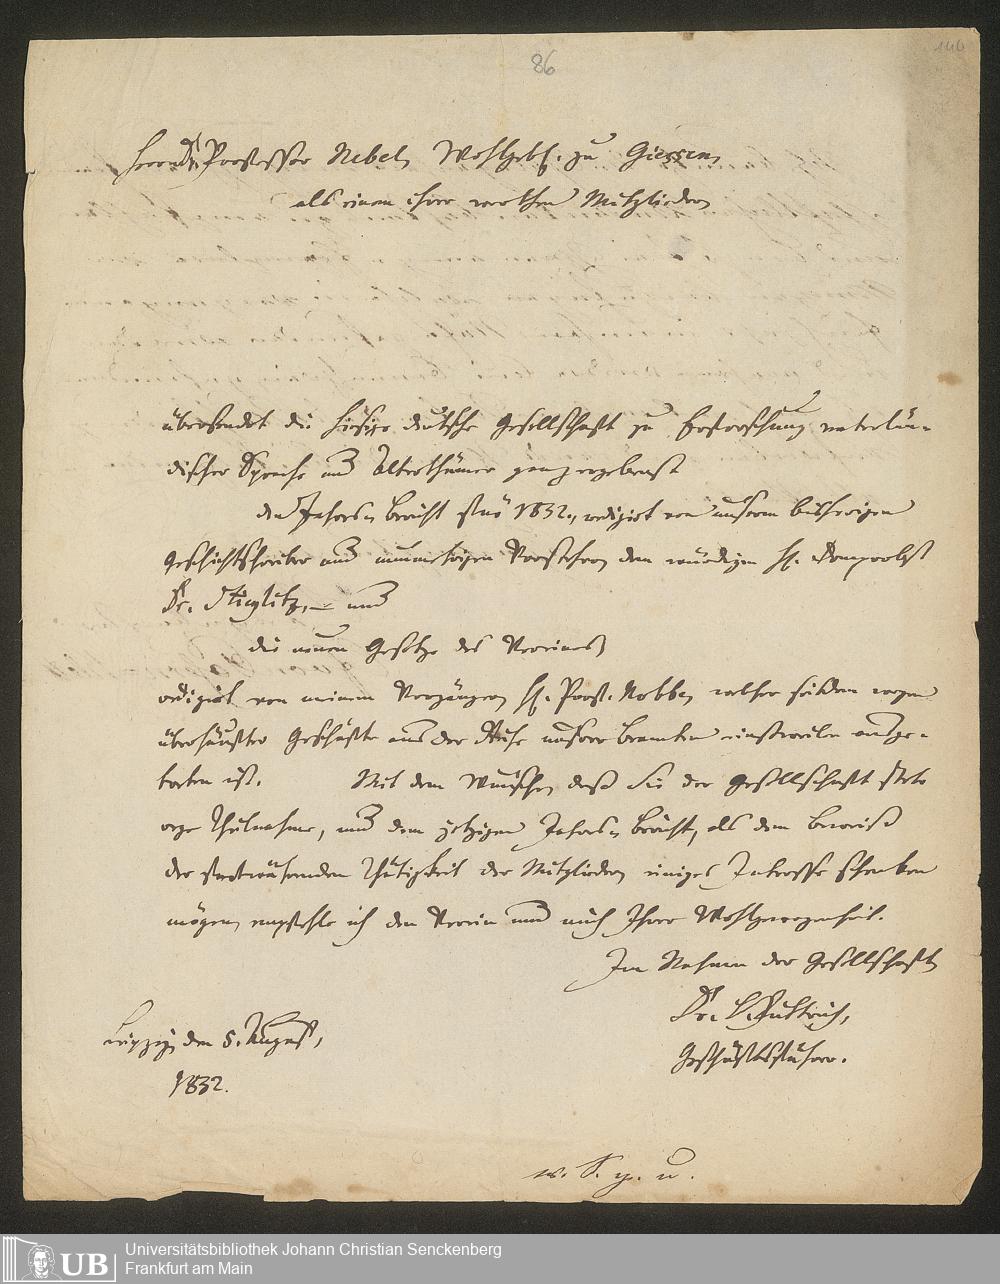 86
140
Herrn Dr. Professor Nebel, Wohlgeb. zu Giessen,
als einem ihrer werthen Mitglieder,
übersendet die hiesige deutsche Gesellschaft zu Erforschung vaterlän-
discher Sprache und Alterthümer ganz ergebenst
den Jahres-Bericht für 1832, redigirt von unserm bisherigen
Geschichtschreiber und nunmehrigen Vorsteher, dem würdigen H. Domprobst
Dr. Stieglitz, – und
die neuen Gesetze des Vereines,
redigirt von meinem Vorgänger, H. Prof. Nobbe, welcher seitdem wegen
überhäufter Geschäfte aus der Reihe unserer Beamten einstweilen ausge-
treten ist. Mit dem Wunsche, daß Sie der Gesellschaft stets
rege Theilnahme, und dem jetzigen Jahres-Bericht, als dem Beweiß
der fortwährenden Thätigkeit der Mitglieder, einiges Interesse schenken
mögen, empfehle ich den Verein und mich Ihrer Wohlgewogenheit.
Im Namen der Gesellschaft
Dr. L. Puttrich,
Geschäftsführer.
Leipzig, den 5. August,
1832.
w. S. g. u.
UB
Universitätsbibliothek Johann Christian Senckenberg
Frankfurt am Main